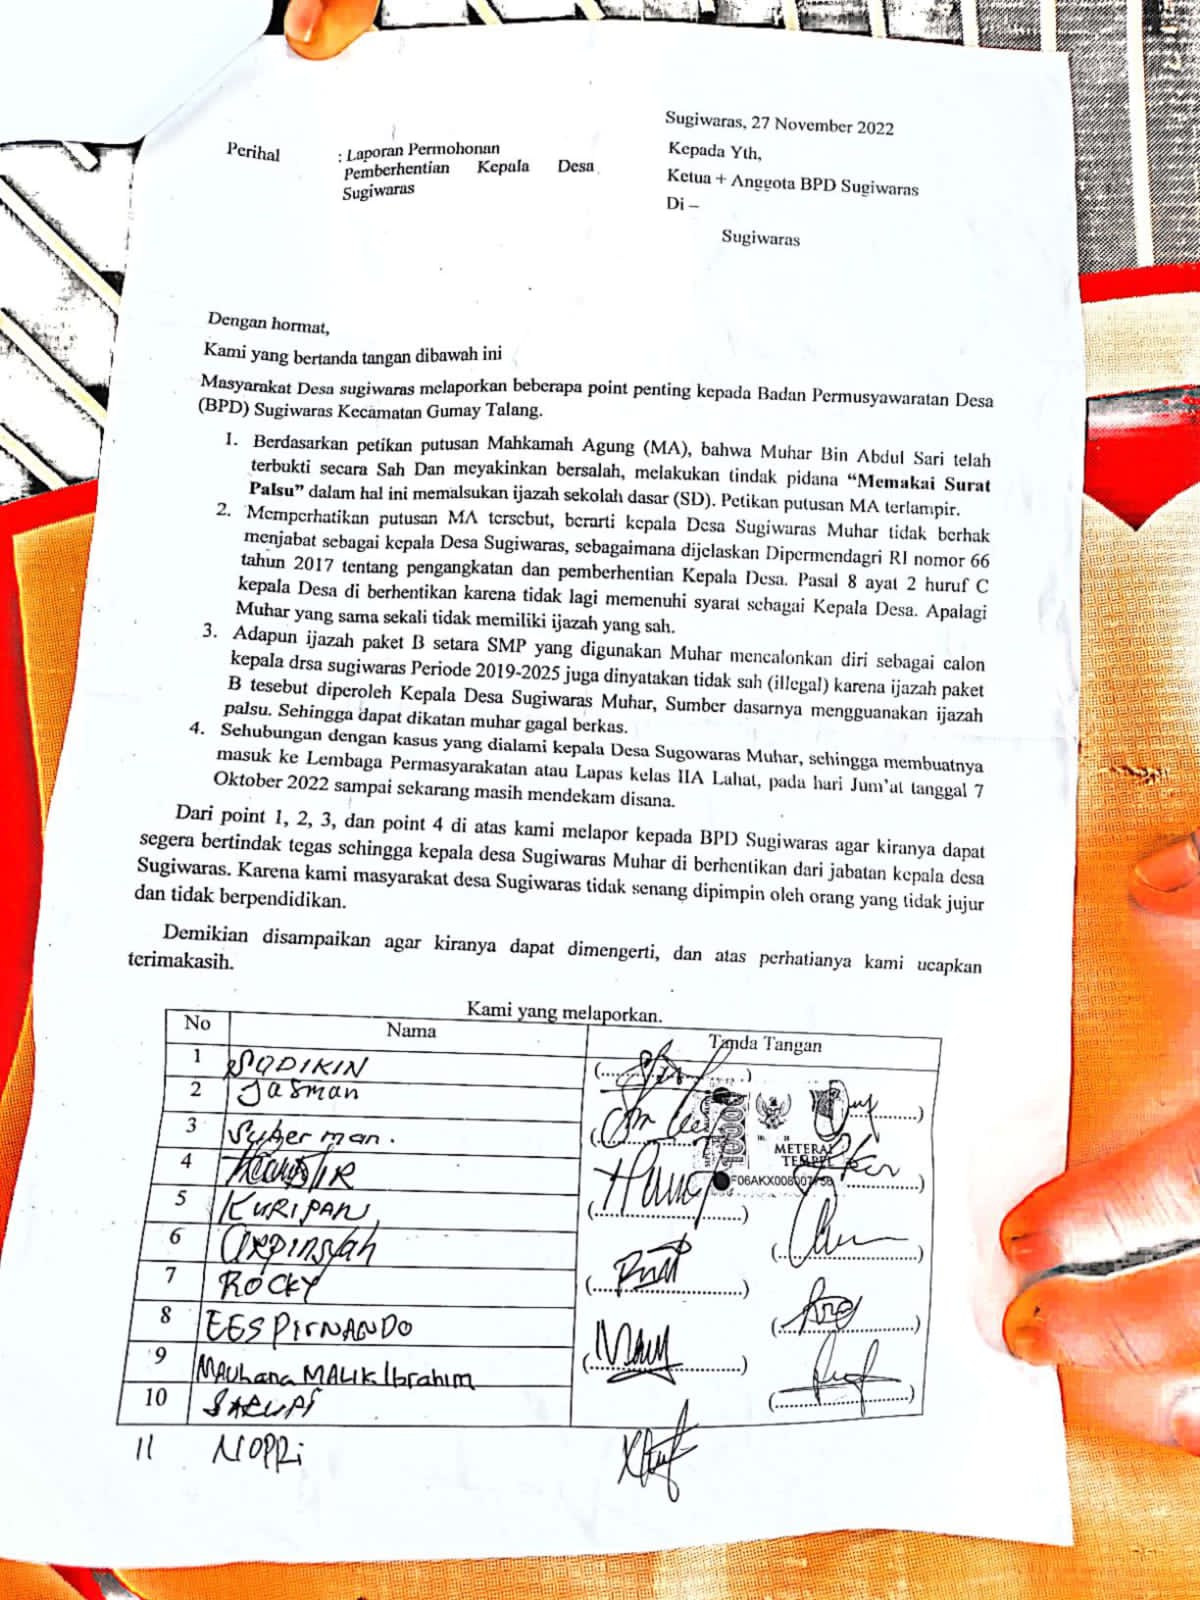 Sugiwaras, 27 November 2022
Perihal : Laporan Permohonan
Pemberhentian Kepala Desa
Sugiwaras
Kepada Yth,
Ketua + Anggota BPD Sugiwaras
Di –
Sugiwaras
Dengan hormat,
Kami yang bertanda tangan dibawah ini
Masyarakat Desa sugiwaras melaporkan beberapa point penting kepada Badan Permusyawaratan Desa
(BPD) Sugiwaras Kecamatan Gumay Talang.
1. Berdasarkan petikan putusan Mahkamah Agung (MA), bahwa Muhar Bin Abdul Sari telah
terbukti secara Sah Dan meyakinkan bersalah, melakukan tindak pidana “Memakai Surat
Palsu” dalam hal ini memalsukan ijazah sekolah dasar (SD). Petikan putusan MA terlampir.
2. Memperhatikan putusan MA tersebut, berarti kepala Desa Sugiwaras Muhar tidak berhak
menjabat sebagai kepala Desa Sugiwaras, sebagaimana dijelaskan Dipermendagri RI nomor 66
tahun 2017 tentang pengangkatan dan pemberhentian Kepala Desa. Pasal 8 ayat 2 huruf C
kepala Desa di berhentikan karena tidak lagi memenuhi syarat sebagai Kepala Desa. Apalagi
Muhar yang sama sekali tidak memiliki ijazah yang sah.
3. Adapun ijazah paket B setara SMP yang digunakan Muhar mencalonkan diri sebagai calon
kepala drsa sugiwaras Periode 2019-2025 juga dinyatakan tidak sah (illegal) karena ijazah paket
B tesebut diperoleh Kepala Desa Sugiwaras Muhar, Sumber dasarnya mengguanakan ijazah
palsu. Sehingga dapat dikatan muhar gagal berkas.
4. Sehubungan dengan kasus yang dialami kepala Desa Sugowaras Muhar, sehingga membuatnya
masuk ke Lembaga Permasyarakatan atau Lapas kelas IIA Lahat, pada hari Jum’at tanggal 7
Oktober 2022 sampai sekarang masih mendekam disana.
Dari point 1, 2, 3, dan point 4 di atas kami melapor kepada BPD Sugiwaras agar kiranya dapat
segera bertindak tegas sehingga kepala desa Sugiwaras Muhar di berhentikan dari jabatan kepala desa
Sugiwaras. Karena kami masyarakat desa Sugiwaras tidak senang dipimpin oleh orang yang tidak jujur
dan tidak berpendidikan.
Demikian disampaikan agar kiranya dapat dimengerti, dan atas perhatianya kami ucapkan
terimakasih.
Kami yang melaporkan.
No Nama Tanda Tangan
1 SODIKIN
2 Jasman
3 Suherman.
4
5 KURIPAN
6 ARPINSYAh
7 ROCKY
8 EES PIRNANDO
9 MAUhana MALIK Ibrahim
10 SARUPI
11 NOPRi
METERAI
TEMPEL